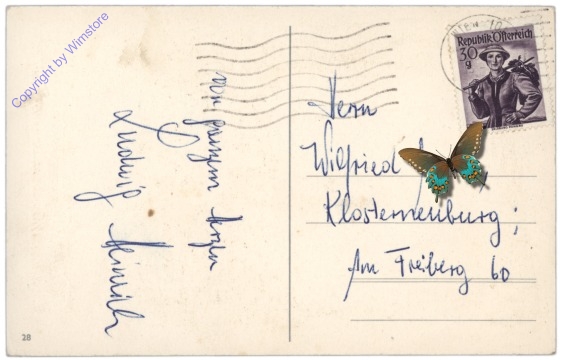 Copyright by Wimstore
Von ganzem Herzen
Ludwig Heinrich
WIEN 10
Republik Österreich
30 g
Herrn
Wilfried
Klosterneuburg;
Am Freiberg 60
28